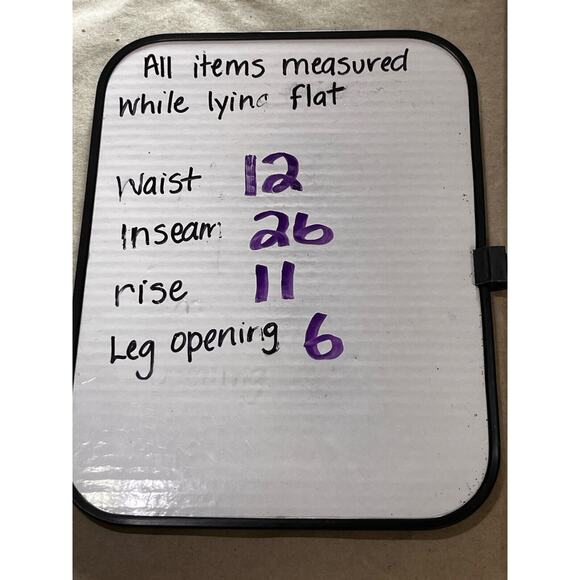 All items measured
while lying flat
Waist 12
Inseam 26
rise 11
Leg opening 6